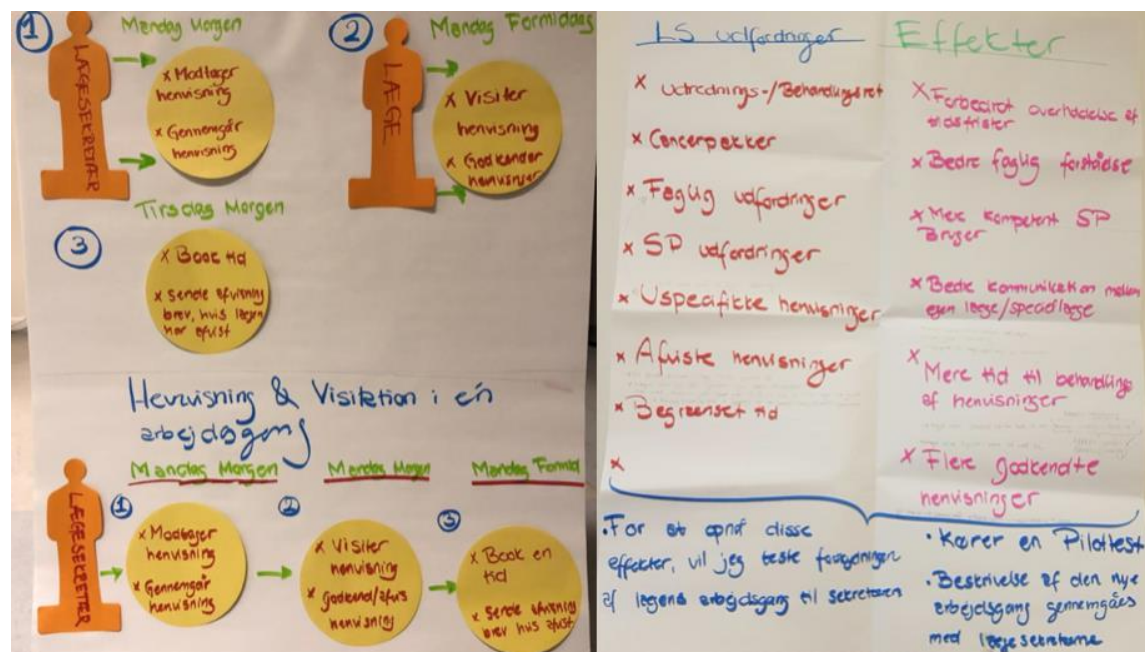 1
LÆGESEKRETÆR
Mandag Morgen
x Modtager
henvisning
x Gennemgår
henvisning
2
LÆGE
Mandag Formiddag
x Visiter
henvisning
x Godkender
henvisninger
Tirsdag Morgen
3
x Book tid
x Sende afvisning
brev, hvis lægen
har afvist
Henvisning & Visitation i én
arbejdsgang
LÆGESEKRETÆR
Mandag Morgen
1
x Modtager
henvisning
x Gennemgår
henvisning
Mandag Morgen
2
x Visiter
henvisning
x godkend/afvis
henvisning
Mandag Formid
3
x Book en
tid
x Sende afvisning
brev hvis afvist
LS udfordringer
x Udrednings-/Behandlingsret
x Cancerpakker
x Faglig udfordringer
x SP udfordringer
x Uspecifikke henvisninger
x Afviste henvisninger
x Begrænset tid
x
Effekter
x Forbedret overholdelse af
tidsfrister
x Bedre faglig forståelse
x Mere kompetent SP
Bruger
x Bedre kommunikation mellem
egen læge/speciallæge
x Mere tid til behandling
af henvisninger
x Flere godkendte
henvisninger
• For at opnå disse
effekter, vil jeg teste
af lægens arbejdsgang til sekretæren
• Kører en Pilottest
• Beskrivelse af den nye
arbejdsgang gennemgåes
med lægesekretærerne